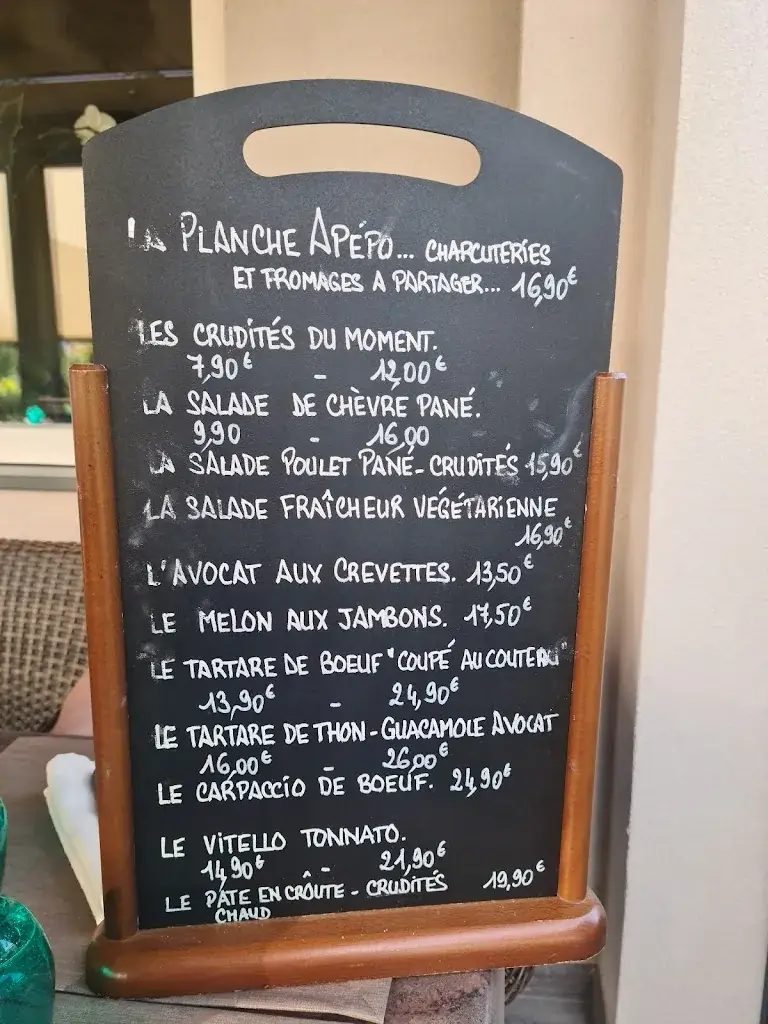 LA PLANCHE APÉPO... CHARCUTERIES
ET FROMAGES A PARTAGER... 16,90€
LES CRUDITÉS DU MOMENT.
7,90€ - 12,00€
LA SALADE DE CHÈVRE PANÉ.
9,90 - 16,00
LA SALADE POULET PANÉ-CRUDITÉS 15,90€
LA SALADE FRAÎCHEUR VÉGÉTARIENNE
16,90€
L'AVOCAT AUX CREVETTES. 13,50€
LE MELON AUX JAMBONS. 17,50€
LE TARTARE DE BOEUF "COUPÉ AU COUTEAU"
13,90€ - 24,90€
LE TARTARE DE THON - GUACAMOLE AVOCAT
16,00€ - 26,00€
LE CARPACCIO DE BOEUF. 24,90€
LE VITELLO TONNATO.
14,90€ - 21,90€
LE PÂTE EN CROÛTE - CRUDITÉS 19,90€
CHAUD